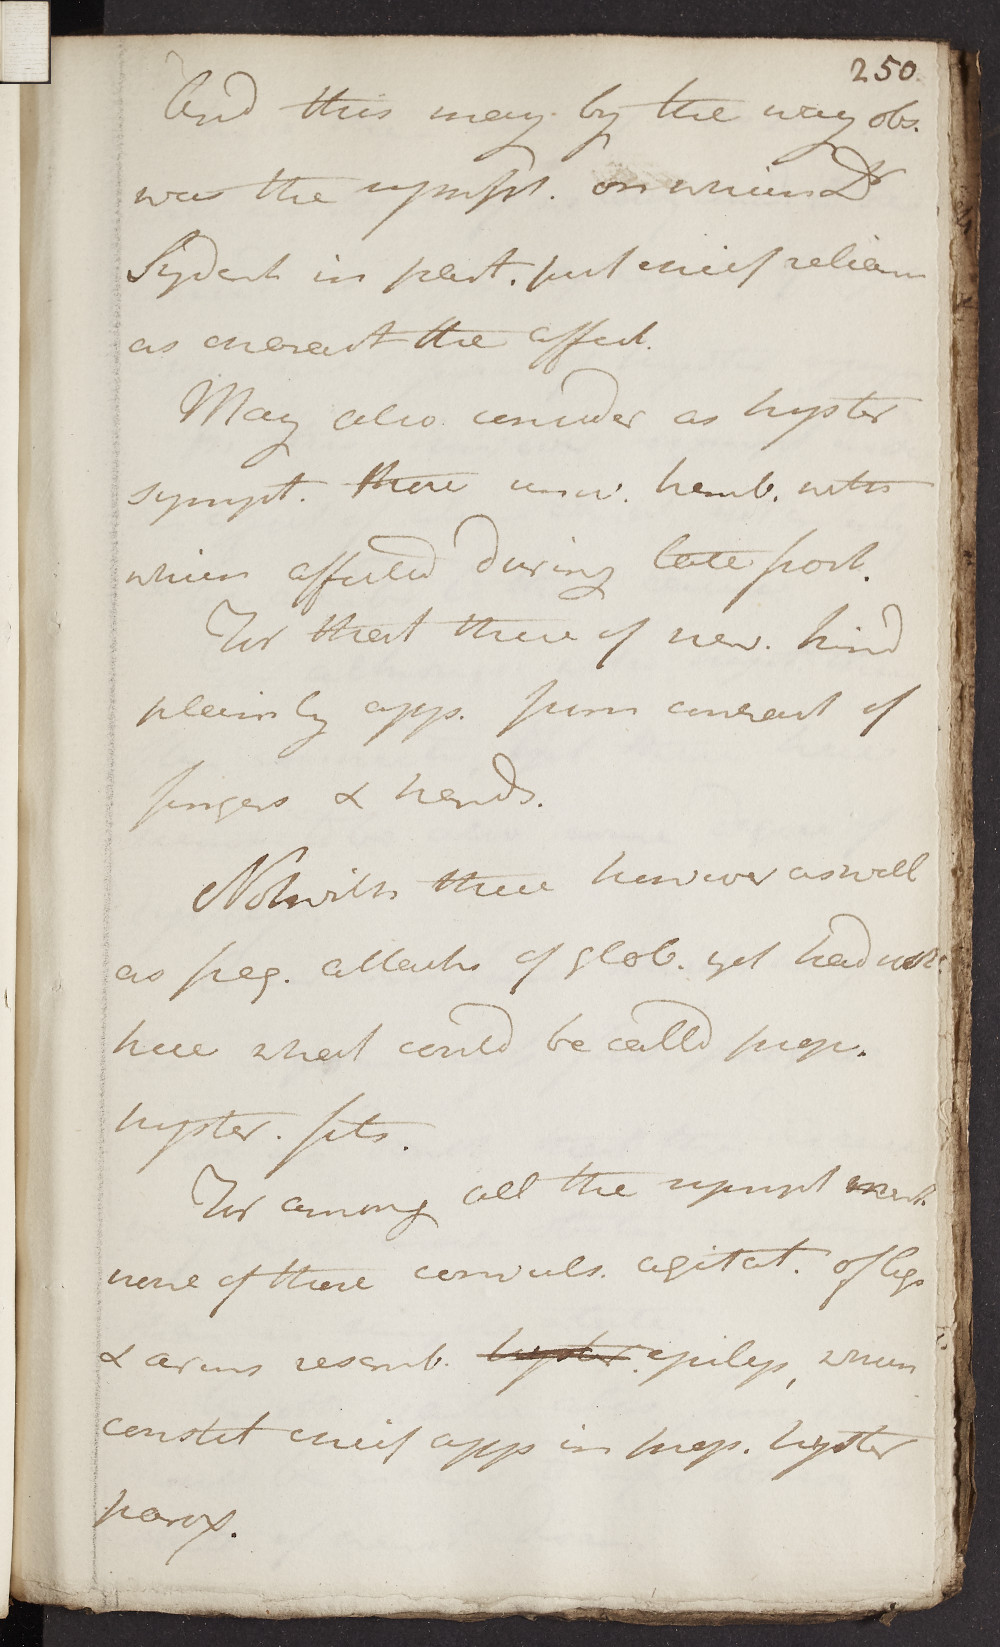 250.
And this may by the way obs.
was the sympt. on which Dr
Sydenh in part. put chief relian
as charact the affect.
May also consider as hyster
sympt. those conv. hemb. with
which affected during late part.
For that these of nerv. kind
plainly app. from contract of
fingers & hands.
Notwith these however as well
as freq. attacks of glob. yet had not
here what could be calld prop.
hyster. fits.
For among all the sympt ment.
none of those convuls. agitat. of legs
& arms resemb. hyster. epileps, which
constit chief app in prop. hyster
parox.